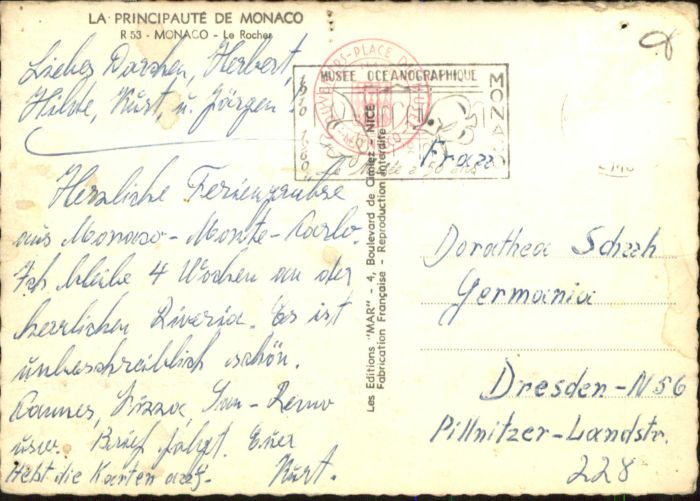 LA PRINCIPAUTÉ DE MONACO
R 53 - MONACO - Le Rocher
Liebes Dorchen, Herbert,
Hilde, Kurt, u. Jörgen!
Herzliche Feriengrüße
aus Monaso - Monte-Carlo.
Ich bleibe 4 Wochen an der
herrlichen Riveria. Es ist
unbeschreiblich schön.
Cannes, Nizza, San-Remo
usw. Brief folgt. Euer
Hebt die Karten auf. Kurt.
MUSÉE OCÉANOGRAPHIQUE
1910 1960
MONACO
PLACE DU
Les Editions "MAR" - 4, Boulevard de Cimiez - NICE
Fabrication Française - Reproduction Interdite
Frau
Dorothea
Germania
Dresden-N56
Pillnitzer-Landstr.
228